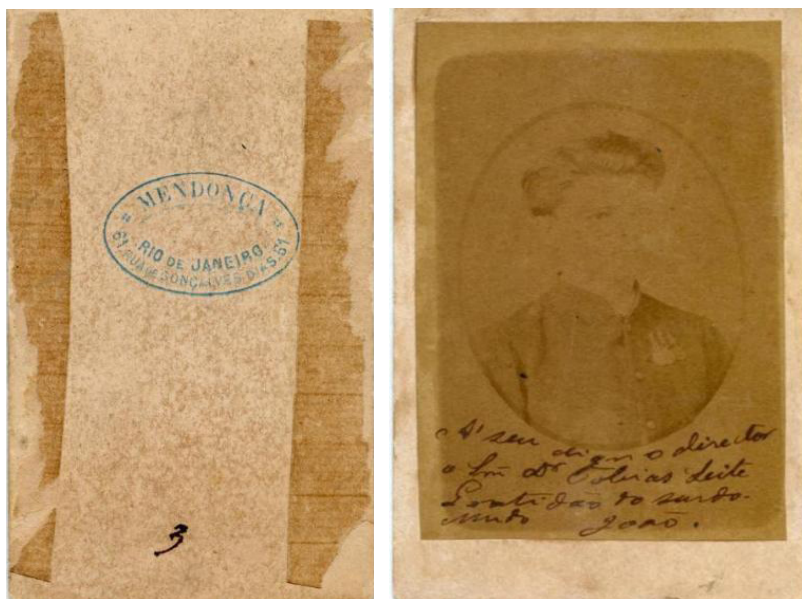 MENDONÇA
RIO DE JANEIRO
61, RUA DE GONÇALVES DIAS, 61
3
A' seu digno director
o Snr Dr Tobias Leite
Gratidão do surdo-
mudo João.